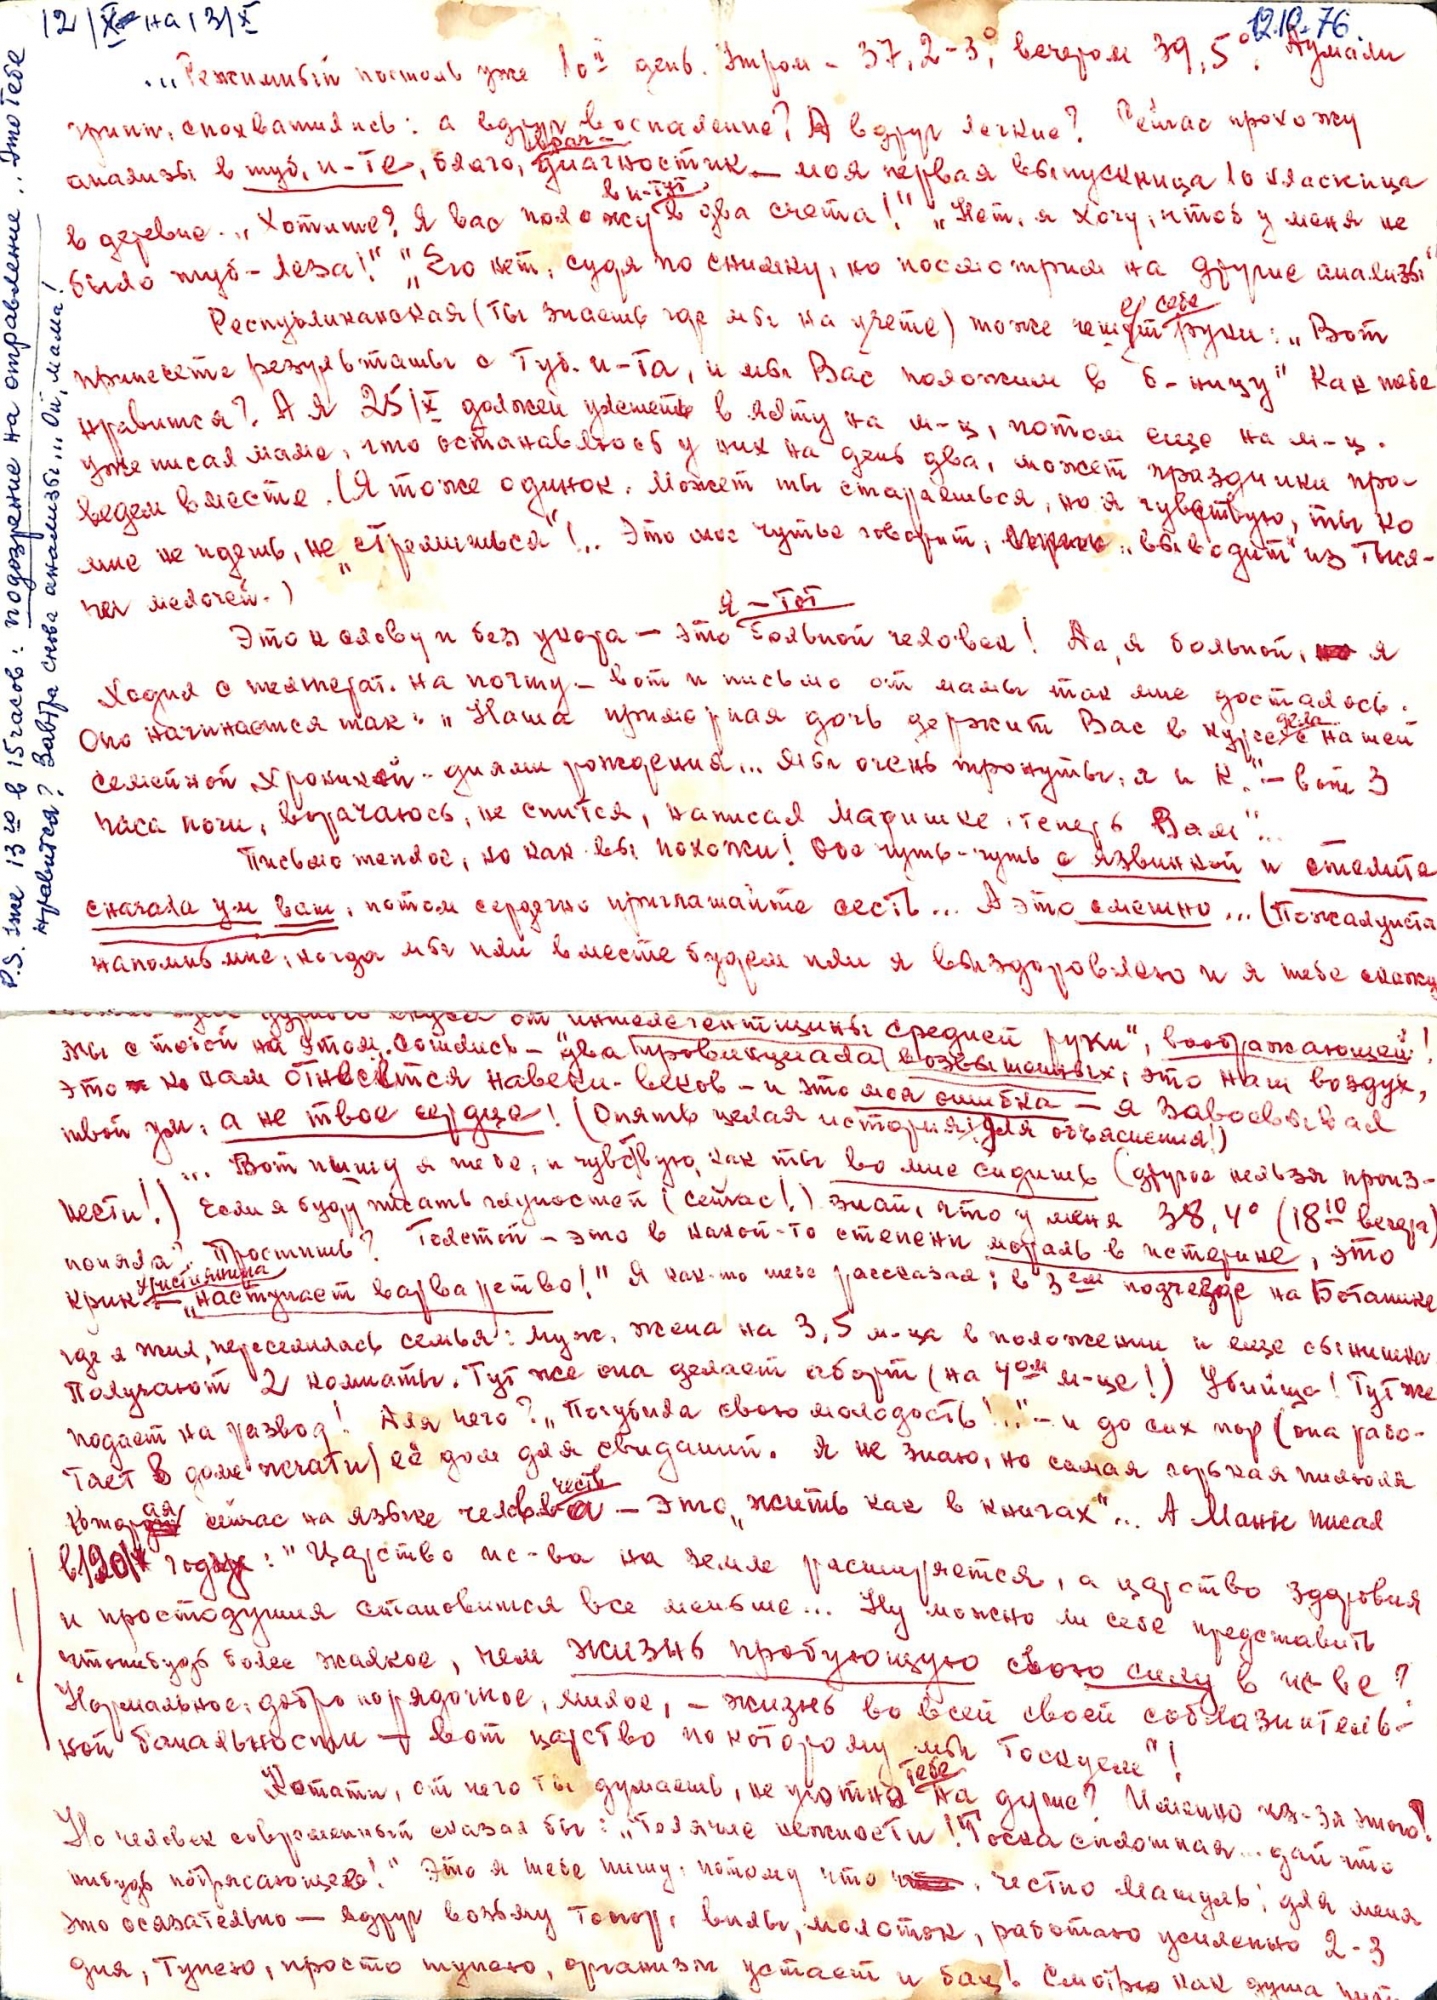 12/X на 13/X
12.10.76.
...Режимный постель уже 10й день. Утром – 37,2-3°, вечером 39,5°. Думали
грипп, спохватились: а вдруг воспаление? А вдруг легкие? Сейчас прохожу
анализы в туб. и-те, благо, врач- диагностик – моя первая выпускница 10 классница
в деревне. „Хотите? Я вас положу в и-тут в два счета!" „Нет, я хочу, чтоб у меня не
было туб-леза!" „Его нет, судя по снимку, но посмотрим на другие анализы"
Республиканская (ты знаешь где мы на учете) тоже чешет себе руки: „Вот
принесете результаты с Туб. и-та, и мы Вас положим в б-ницу" Как тебе
нравится? А я 25/X должен улететь в Ялту на м-ц, потом еще на м-ц.
Уже писал маме, что останавлюсь у них на день два, может праздники про-
ведем вместе. (Я тоже одинок. Может ты стараешься, но я чувствую, ты ко
мне не идешь, не „стремишься"!.. Это мое чутье говорит, „выводит" из тыся-
чи мелочей.)
Это к слову и без укора – это я – тот больной человек! Да, я больной, я
ходил с температ. на почту – вот и письмо от мамы так мне досталось.
Оно начинается так: „Наша примерная дочь держит Вас в курсе дела с нашей
семейной хроникой – днями рождения... Мы очень тронуты, я и К." – вот 3
часа ночи, ворачаюсь, не спится, написал Маришке, теперь Вам"...
Письмо теплое, но как вы похожи! Обе чуть-чуть с язвинкой и стелите
сначала ум ваш, потом сердечно приглашайте сесть... А это смешно... (Пожалуйста
напомнь мне, когда мы или вместе будем или я выздоровлею и я тебе скажу
от интеллигентщины средней руки", воображающей!
мы с тобой на этом сошлись – "два провинциала возвышенных, это наш воздух,
это к нам относится навеки-веков – и это моя ошибка – я завоевывал
твой ум, а не твое сердце! (Опять целая история для объяснения!)
... Вот пишу я тебе, и чувствую, как ты во мне сидишь (другое нельзя произ-
нести!) Если я буду писать глупостей (сейчас!) знай, что у меня 38,4° (18 10 вечера)
поняла? Простишь? Толстой – это в какой-то степени мораль в истерике, это
крик христианина – „наступает варварство!" Я как-то тебе рассказал; в 3ем подъезде на Ботанике
где я жил, переселилась семья: муж, жена на 3,5 м-ца в положении и еще сынишка.
Получают 2 комнаты. Тут же она делает аборт (на 4ом м-це!) Убийца! Тут же
подает на развод! Для чего? „Погубила свою молодость!.." – и до сих пор (она рабо-
тает в доме печати) её дом для свиданий. Я не знаю, но самая горькая пилюля
которая сейчас на языке человечества – это „жить как в книгах"... А Манн писал
в году: "Царство ис-ва на земле расширяется, а царство здоровья
и простодушия становится все меньше... Ну можно ли себе представить
чтонибудь более жалкое, чем жизнь пробующую свою силу в ис-ве?
Нормальное, добропорядочное, милое, – жизнь во всей своей соблазнитель-
ной банальности – вот царство по которому мы тоскуем"!
Кстати, от чего ты думаешь, не уютно тебе на душе? Именно из-за этого!
Но человек современный сказал бы: „Телячие нежности! Тоска сплошная... дай что
нибудь потрясающего!" Это я тебе пишу, потому что, честно Машуль, для меня
это осязательно – вдруг возьму топор, вилы, молоток, работаю усиленно 2-3
дня, тупею, просто тупею, организм устает и бац! Смотрю как душа
P.S. Уже 13го в 15 часов: подозрение на отравление... Это тебе
нравится? Завтра снова анализы... Ой, мама!